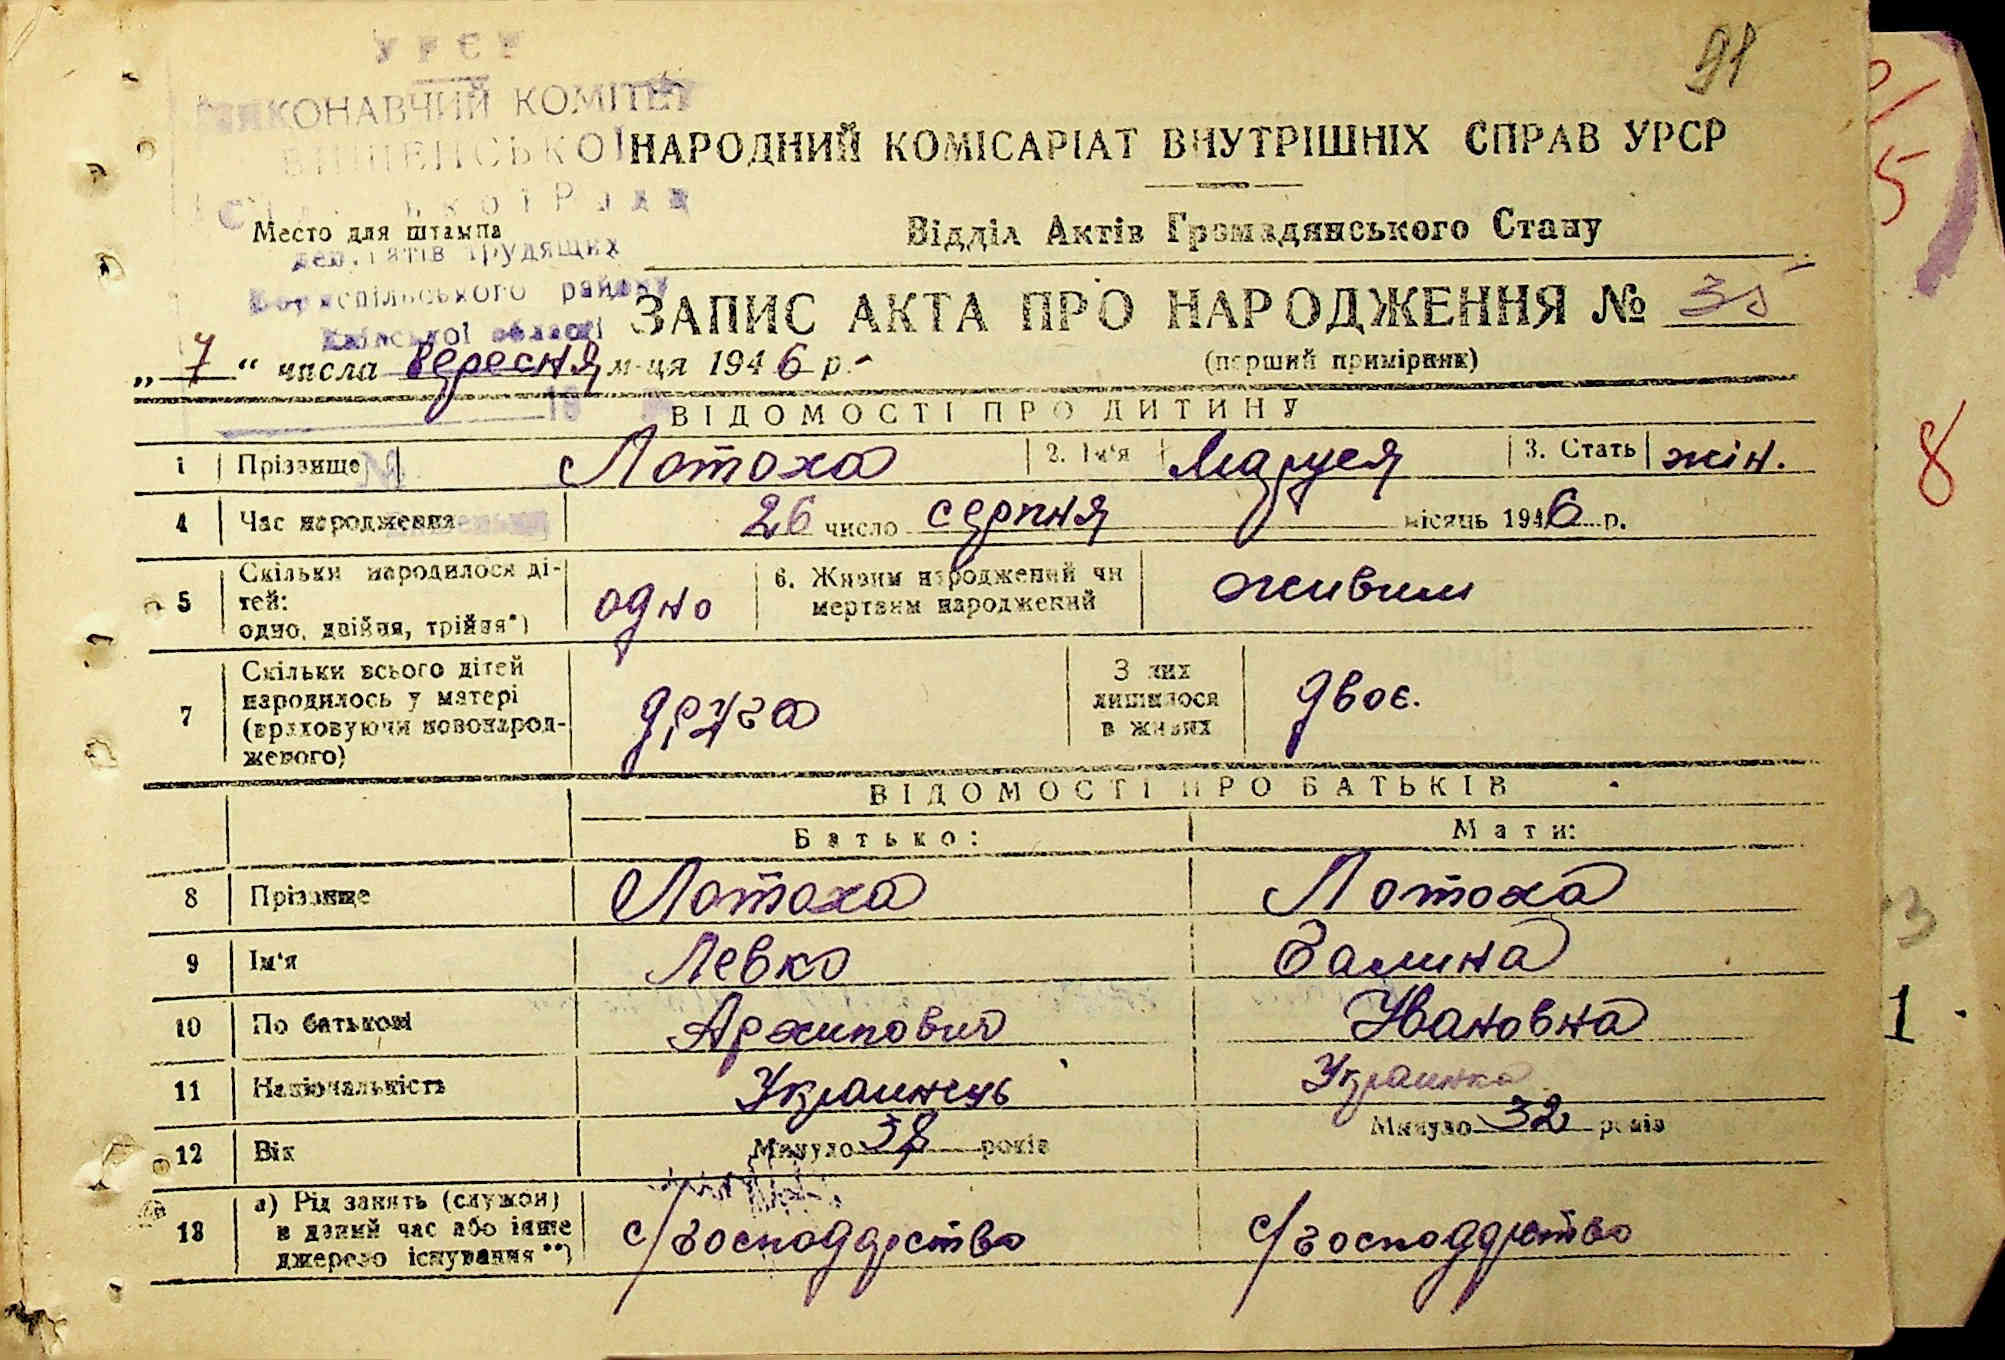 91
УРСР
ВИКОНАВЧИЙ КОМІТЕТ
НАРОДНИЙ КОМІСАРІАТ ВНУТРІШНІХ СПРАВ УРСР
Место для штампа
Відділ Актів Громадянського Стану
депутатів трудящих
Бориспільського району
Київської області
ЗАПИС АКТА ПРО НАРОДЖЕННЯ № 35
„ 7 “ числа вересня м-ця 1946 р.
(перший примірник)
ВІДОМОСТІ ПРО ДИТИНУ
1 Прізвище Лотоха 2. Ім'я Маруся 3. Стать жін.
4 Час народження 26 число серпня місяць 1946 р.
5 Скільки народилося дітей: одно, двійня, трійня*) одно 6. Живим народжений чи мертвим народжений живим
7 Скільки всього дітей народилось у матері (враховуючи новонародженого) друга З них лишилося в живих двоє.
ВІДОМОСТІ ПРО БАТЬКІВ
Батько: Мати:
8 Прізвище Лотоха Лотоха
9 Ім'я Левко Галина
10 По батькові Архипович Ивановна
11 Національність Украинець Украинка
12 Вік Минуло 38 років Минуло 32 років
13 а) Рід занять (служби) в даний час або інше джерело існування**) с/господарство с/господарство